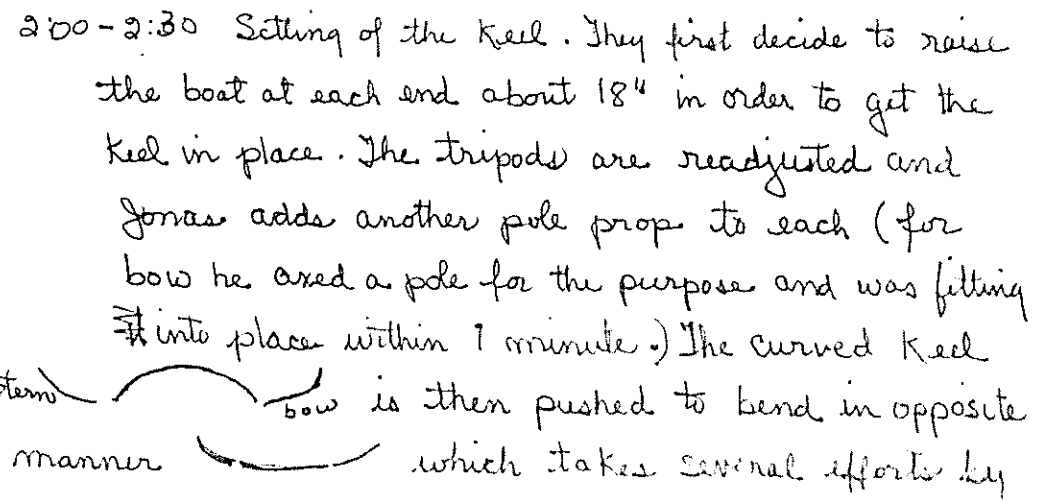 2:00-2:30 Setting of the Keel. They first decide to raise
the boat at each end about 18" in order to get the
Keel in place. The tripods are readjusted and
Jonas adds another pole prop to each (for
bow he axed a pole for the purpose and was fitting
it into place within 1 minute.) The curved Keel
stern bow is then pushed to bend in opposite
manner which takes several efforts by